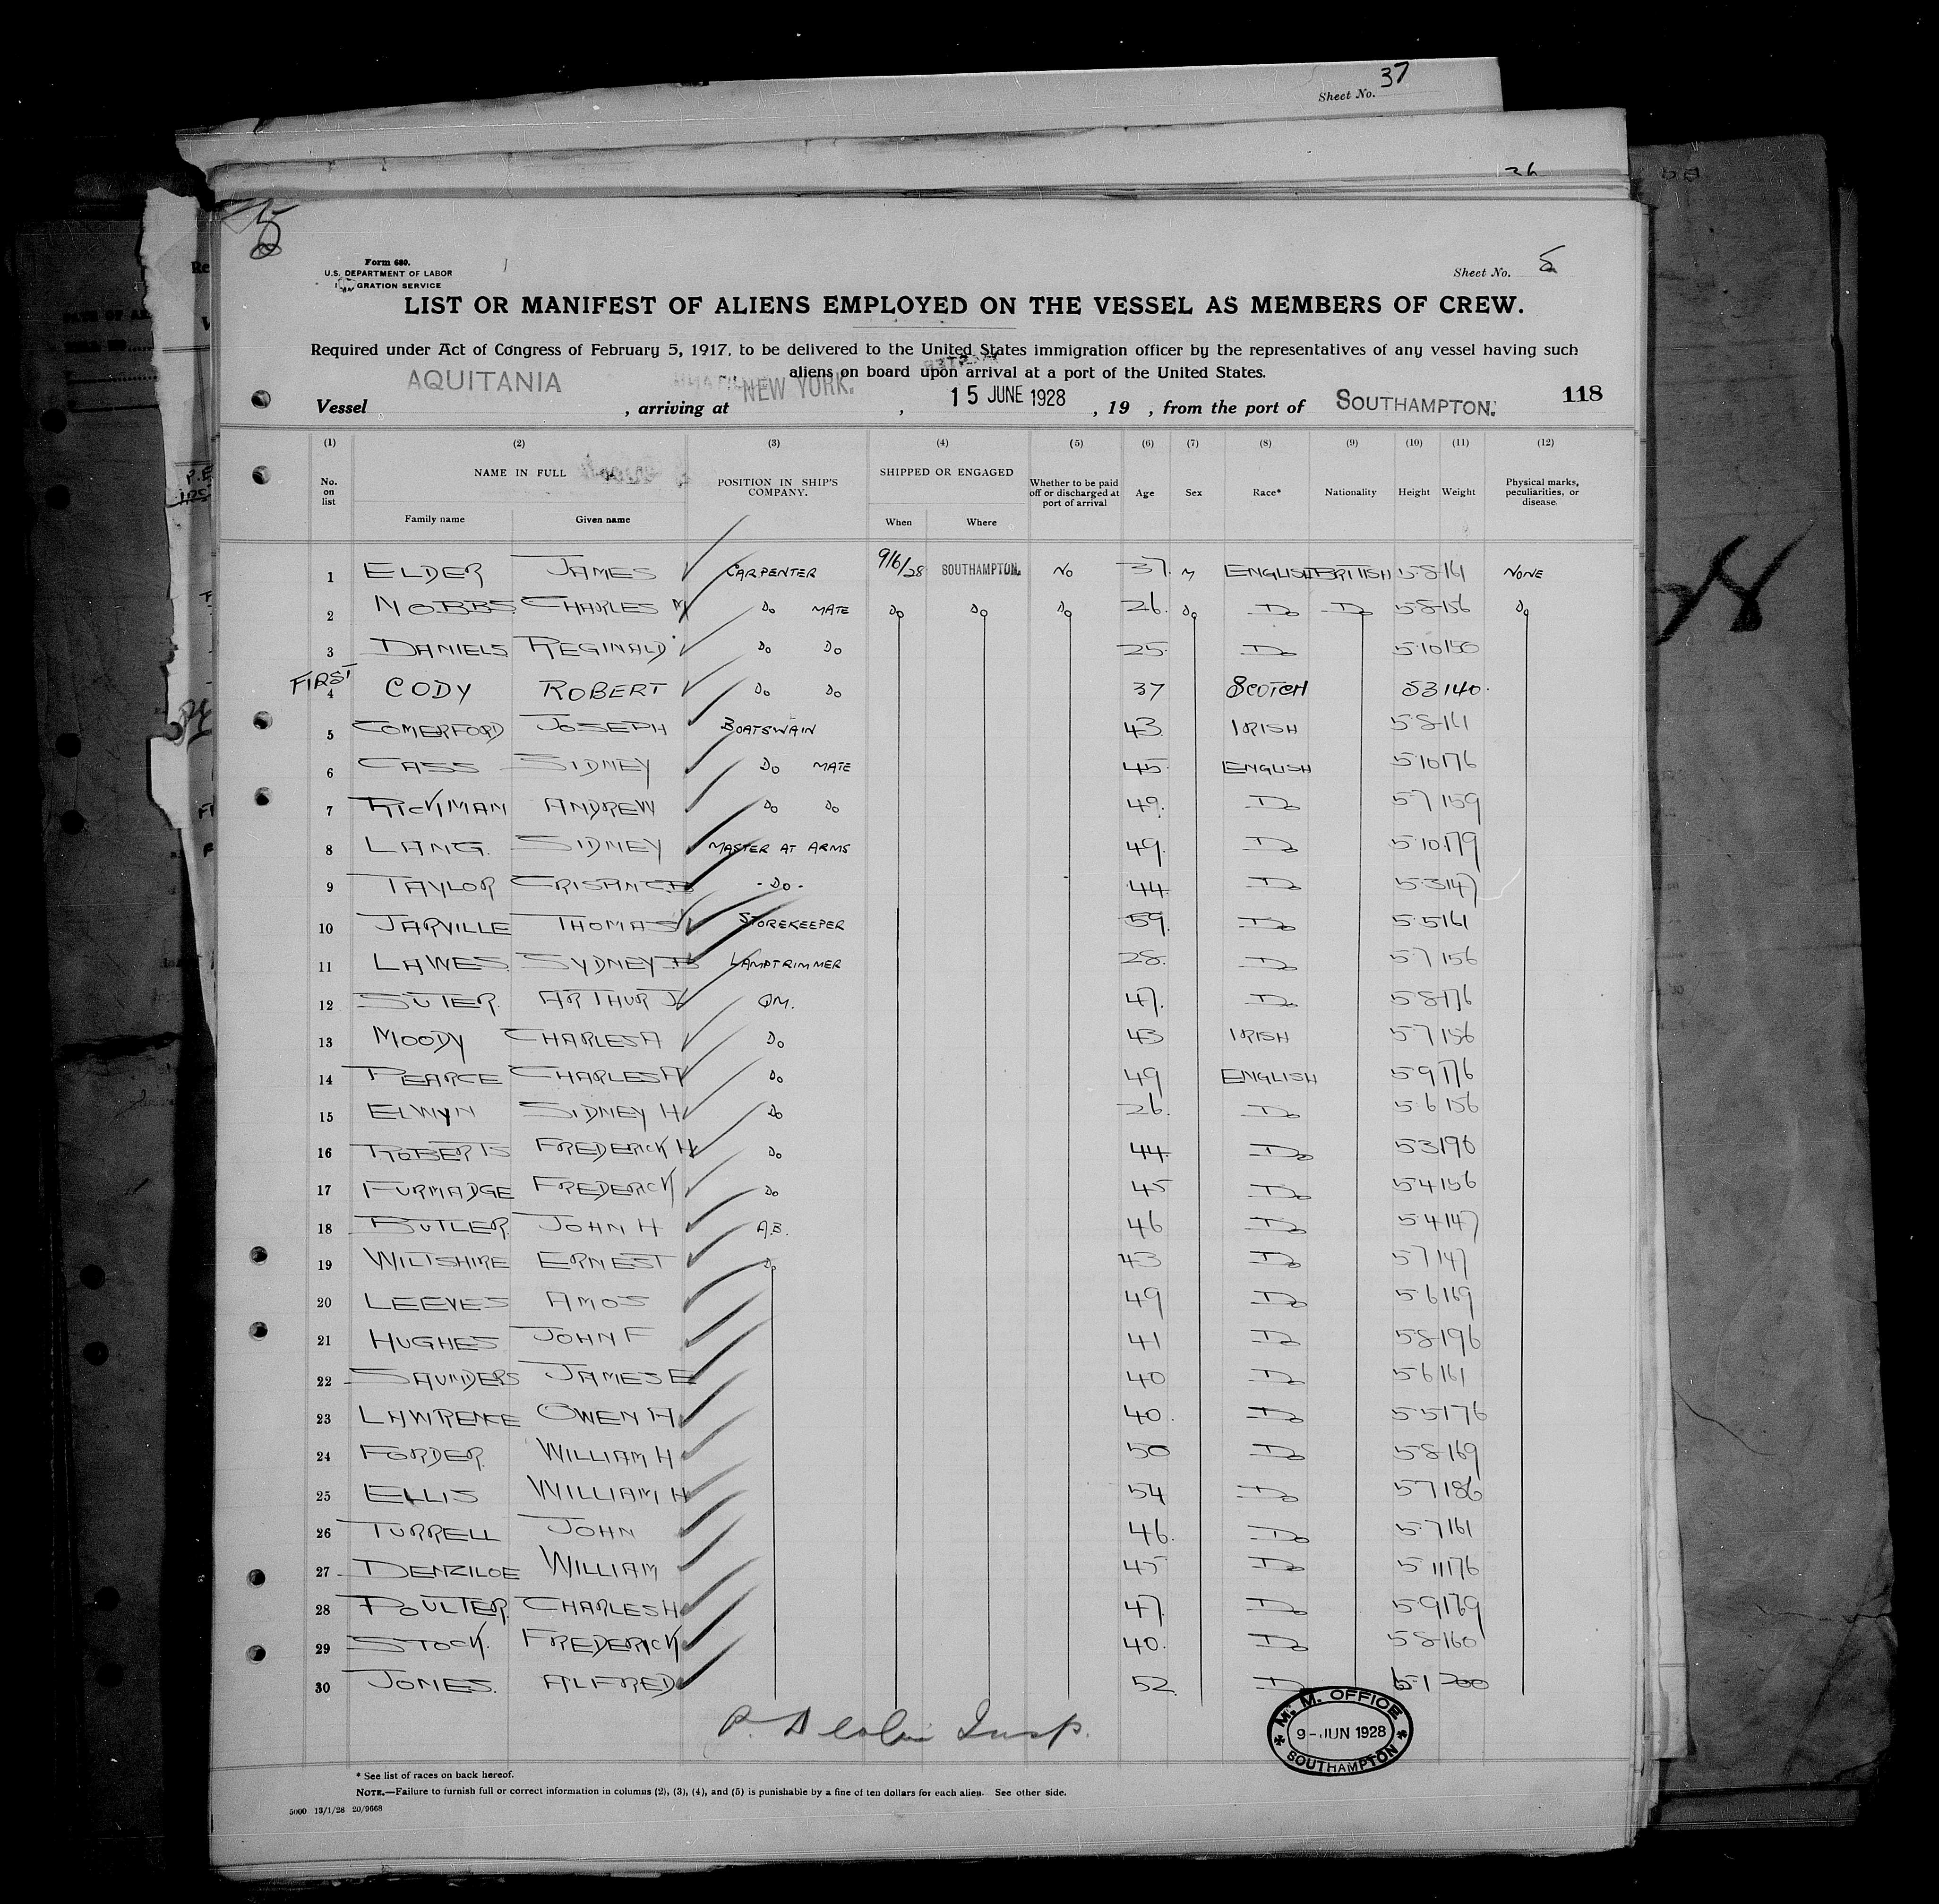 Sheet No. 37
26
Form 689.
U.S. DEPARTMENT OF LABOR
GRATION SERVICE
Sheet No. 5
LIST OR MANIFEST OF ALIENS EMPLOYED ON THE VESSEL AS MEMBERS OF CREW.
Required under Act of Congress of February 5, 1917, to be delivered to the United States immigration officer by the representatives of any vessel having such
aliens on board upon arrival at a port of the United States.
Vessel AQUITANIA , arriving at NEW YORK. , 15 JUNE 1928 , 19 , from the port of SOUTHAMPTON. 118
(1) (2) (3) (4) (5) (6) (7) (8) (9) (10) (11) (12)
No. on list NAME IN FULL Family name Given name POSITION IN SHIP'S COMPANY. SHIPPED OR ENGAGED When Where Whether to be paid off or discharged at port of arrival Age Sex Race* Nationality Height Weight Physical marks, peculiarities, or disease.
1 ELDER JAMES CARPENTER 9/6/28 SOUTHAMPTON. NO 37. M ENGLISH BRITISH 5·8 161 NONE
2 NOBBS CHARLES M Do MATE Do Do Do 26. Do Do Do 5·8 156 Do
3 DANIELS REGINALD Do Do 25. Do 5·10 150
FIRST
4 CODY ROBERT Do Do 37 SCOTCH 53 140.
5 COMERFORD JOSEPH BOATSWAIN 43 IRISH 5·8 161
6 CASS SIDNEY Do MATE 45. ENGLISH 5·10 176
7 RICKMAN ANDREW Do Do 49. Do 5·7 159
8 LANG. SIDNEY MASTER AT ARMS 49. Do 5·10 179
9 TAYLOR -Do- 44 Do 5·3 147
10 JARVILLE THOMAS STOREKEEPER 59. Do 5·5 161
11 LAWES SYDNEY B LAMPTRIMMER 28. Do 5·7 156
12 SUTER. ARTHUR J QM. 47. Do 5·8 176
13 MOODY CHARLES A Do 43 IRISH 5·7 156
14 PEARCE CHARLES A Do 49 ENGLISH 5·9 176
15 ELWYN SIDNEY H Do 26. Do 5·6 156
16 ROBERTS FREDERICK H Do 44 Do 53 190
17 FURMADGE FREDERICK Do 45 Do 54 156
18 BUTLER. JOHN H A.B. 46 Do 5·4 147
19 WILTSHIRE ERNEST Do 43 Do 57 147
20 LEEVES AMOS 49 Do 56 169
21 HUGHES JOHN F 41 Do 58 196
22 SAUNDERS JAMES E 40 Do 56 161
23 LAWRENCE OWEN A 40. Do 5·5 176
24 FORDER WILLIAM H 50 Do 58 169
25 ELLIS WILLIAM H 54 Do 57 186
26 TURRELL JOHN 46. Do 5·7 161
27 DENZILOE WILLIAM 45 Do 5·11 176
28 POULTER CHARLES H 47. Do 5·9 169
29 STOCK. FREDERICK 40. Do 58 160
30 JONES. ALFRED 52. Do 6·1 200
Insp.
M. M. OFFICE
9 - JUN 1928
SOUTHAMPTON
* See list of races on back hereof.
NOTE.—Failure to furnish full or correct information in columns (2), (3), (4), and (5) is punishable by a fine of ten dollars for each alien. See other side.
5000 13/1/28 20/9668